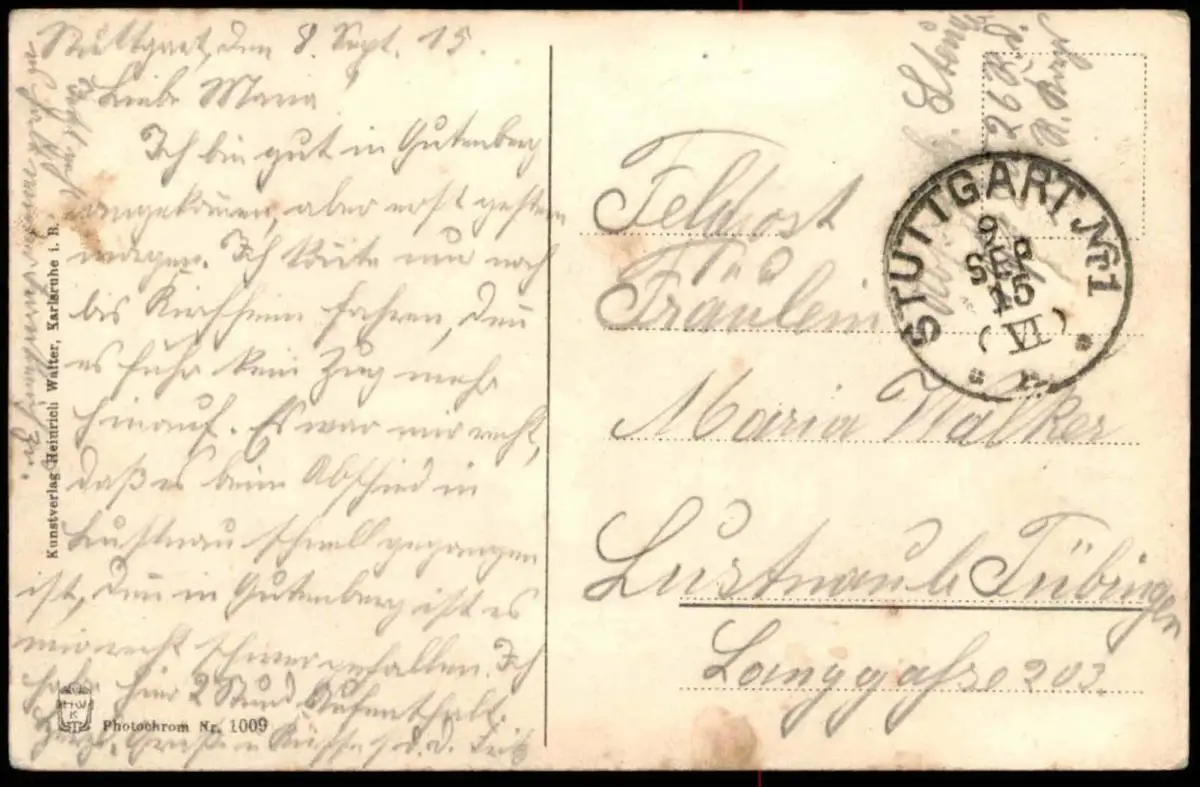 Stuttgart, den 8. Sept. 15.
Liebe Maria!
Ich bin gut in Gutenberg
angekommen, aber erst gestern
morgen. Ich konnte nur noch
bis Kirchheim fahren, denn
es fuhr kein Zug mehr
hinauf. Es war mir recht,
daß es beim Abschied in
Lustnau schnell gegangen
ist, denn in Gutenberg ist es
mir recht schwer gefallen. Ich
habe hier 2 Stund. Aufenthalt.
Herzl. Gruße u Küsse s d. d. Fritz
Kunstverlag Heinrich Walter, Karlsruhe i. B.
Photochrom Nr. 1009
Feldpost
Fräulein
Maria Walker
Lustnau b. Tübingen
Langgasse 203
STUTTGART № 1
9
SEP
15
(VI)